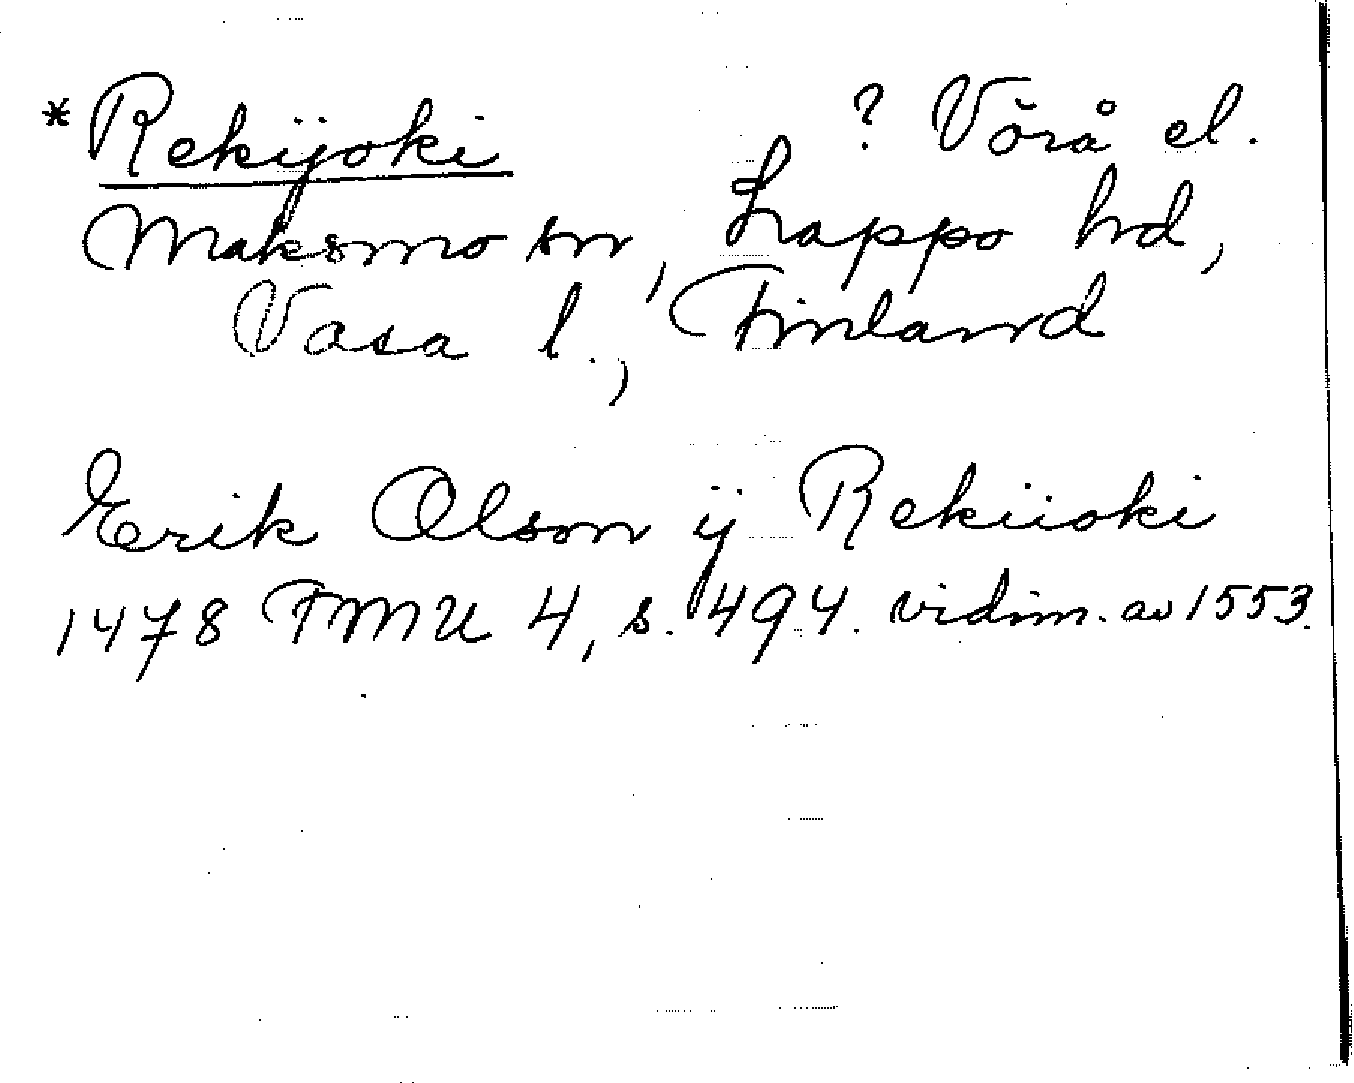 * Rekijoki ? Vörå el.
Maksmo sn, Lappo hd,
Vasa l., Finland
Erik Olson ij Rekiioki
1478 FMU 4, s. 494. vidim. av 1553.